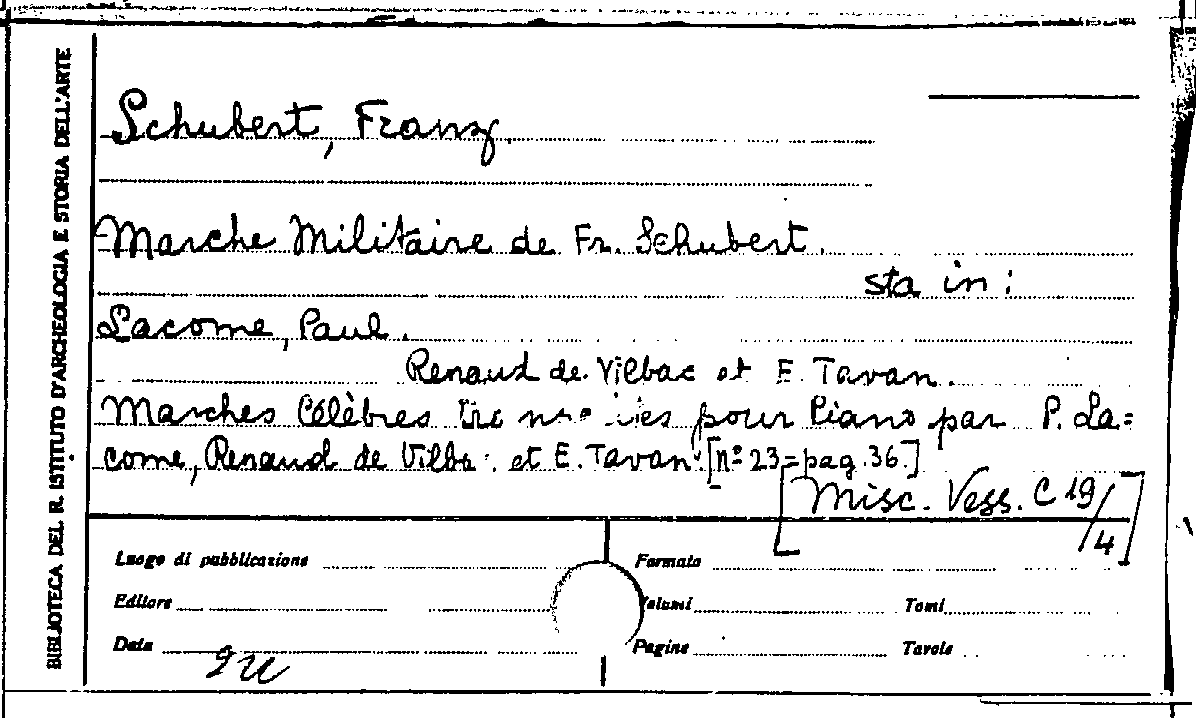 BIBLIOTECA DEL R. ISTITUTO D'ARCHEOLOGIA E STORIA DELL'ARTE
Schubert, Franz.
Marche Militaire de Fr. Schubert.
sta in:
Lacome, Paul.
Renaud de Vilbac et E. Tavan.
Marches Célèbres pour Piano par P. La=
come, Renaud de Vilba. et E. Tavan. [nº 23=pag. 36.]
[Misc. Vess. C 19/4]
Luogo di pubblicazione
Formato
Editore
Volumi
Tomi
Data
Pagine
Tavole